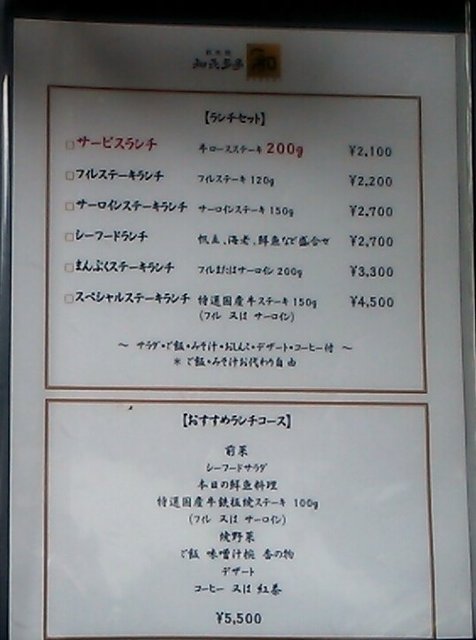 【ランチセット】
□サービスランチ 牛ロースステーキ 200g ¥2,100
□フィレステーキランチ フィレステーキ 120g ¥2,200
□サーロインステーキランチ サーロインステーキ 150g ¥2,700
□シーフードランチ 帆立、海老、鮮魚など盛合せ ¥2,700
□まんぷくステーキランチ フィレまたはサーロイン 200g ¥3,300
□スペシャルステーキランチ 特選国産牛ステーキ 150g ¥4,500
(フィレ 又は サーロイン)
～ サラダ・ご飯・みそ汁・おしんこ・デザート・コーヒー付 ～
＊ご飯・みそ汁お代わり自由
【おすすめランチコース】
前菜
シーフードサラダ
本日の鮮魚料理
特選国産牛鉄板焼ステーキ 100g
(フィレ 又は サーロイン)
焼野菜
ご飯 味噌汁椀 香の物
デザート
コーヒー 又は 紅茶
¥5,500